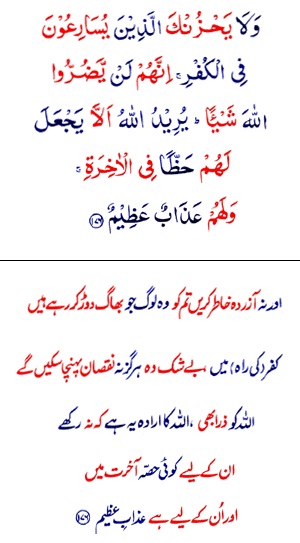 وَلَا يَحْزُنْكَ الَّذِيْنَ يُسَارِعُوْنَ
فِى الْكُفْرِ ۚ اِنَّهُمْ لَنْ يَّضُرُّوا
اللّٰهَ شَيْـًٔا ؕ يُرِيْدُ اللّٰهُ اَلَّا يَجْعَلَ
لَهُمْ حَظًّا فِى الْاٰخِرَةِ ۚ
وَلَهُمْ عَذَابٌ عَظِيْمٌ ﴿۱۷۶﴾
اور نہ آزردہ خاطر کریں تم کو وہ لوگ جو بھاگ دوڑ کر رہے ہیں
کفر (کی راہ) میں، بے شک وہ ہرگز نہ نقصان پہنچا سکیں گے
اللہ کو ذرا بھی، اللہ کا ارادہ یہ ہے کہ نہ رکھے
ان کے لیے کوئی حصّہ آخرت میں
اور اُن کے لیے ہے عذابِ عظیم ﴿۱۷۶﴾